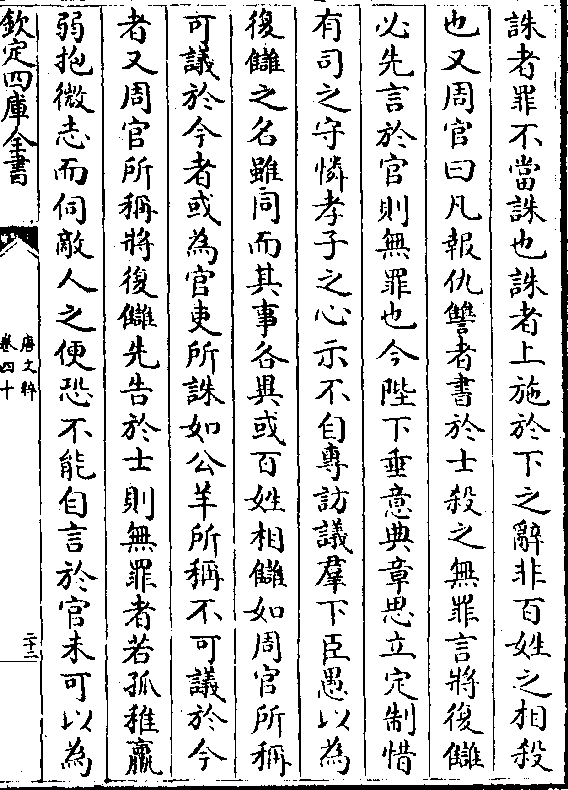 誅者罪不當誅也誅者上施於下之辭非百姓之相殺
也又周官曰凡報仇讐者書於士殺之無罪言將復讎
必先言於官則無罪也今陛下垂意典章思立定制惜
有司之守憐孝子之心示不自專訪議羣下臣愚以為
復讎之名雖同而其事各異或百姓相讎如周官所稱
可議於今者或為官吏所誅如公羊所稱不可議於今
者又周官所稱將復讎先告於士則無罪者若孤稚羸
弱抱微志而伺敵人之便恐不能自言於官未可以為
欽定四庫全書
唐文粹
卷四十
二十二